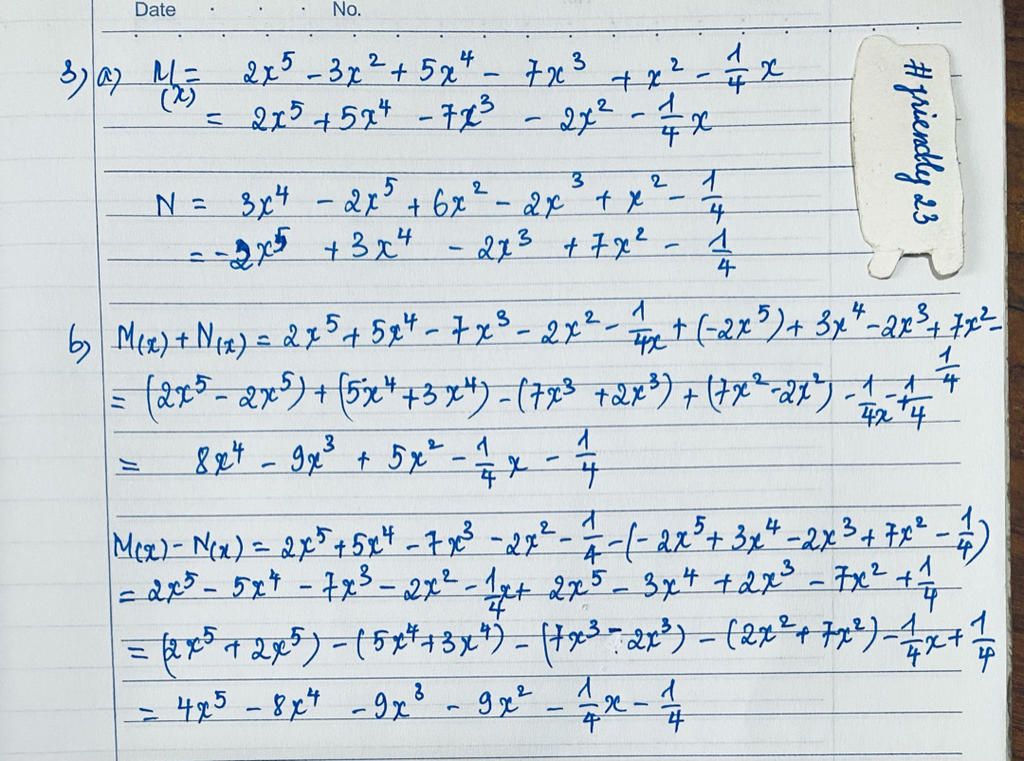 Date . . No.
3) a) M(x) = 2x⁵ - 3x² + 5x⁴ - 7x³ + x² - 1/4 x
= 2x⁵ + 5x⁴ - 7x³ - 2x² - 1/4 x
N = 3x⁴ - 2x⁵ + 6x² - 2x³ + x² - 1/4
= -2x⁵ + 3x⁴ - 2x³ + 7x² - 1/4
b) M(x) + N(x) = 2x⁵ + 5x⁴ - 7x³ - 2x² - 1/4x + (-2x⁵) + 3x⁴ - 2x³ + 7x² - 1/4
= (2x⁵ - 2x⁵) + (5x⁴ + 3x⁴) - (7x³ + 2x³) + (7x² - 2x²) - 1/4x - 1/4
= 8x⁴ - 9x³ + 5x² - 1/4 x - 1/4
M(x) - N(x) = 2x⁵ + 5x⁴ - 7x³ - 2x² - 1/4 - (-2x⁵ + 3x⁴ - 2x³ + 7x² - 1/4)
= 2x⁵ - 5x⁴ - 7x³ - 2x² - 1/4 x + 2x⁵ - 3x⁴ + 2x³ - 7x² + 1/4
= (2x⁵ + 2x⁵) - (5x⁴ + 3x⁴) - (7x³ - 2x³) - (2x² + 7x²) - 1/4 x + 1/4
= 4x⁵ - 8x⁴ - 9x³ - 9x² - 1/4 x - 1/4
#friendly 23